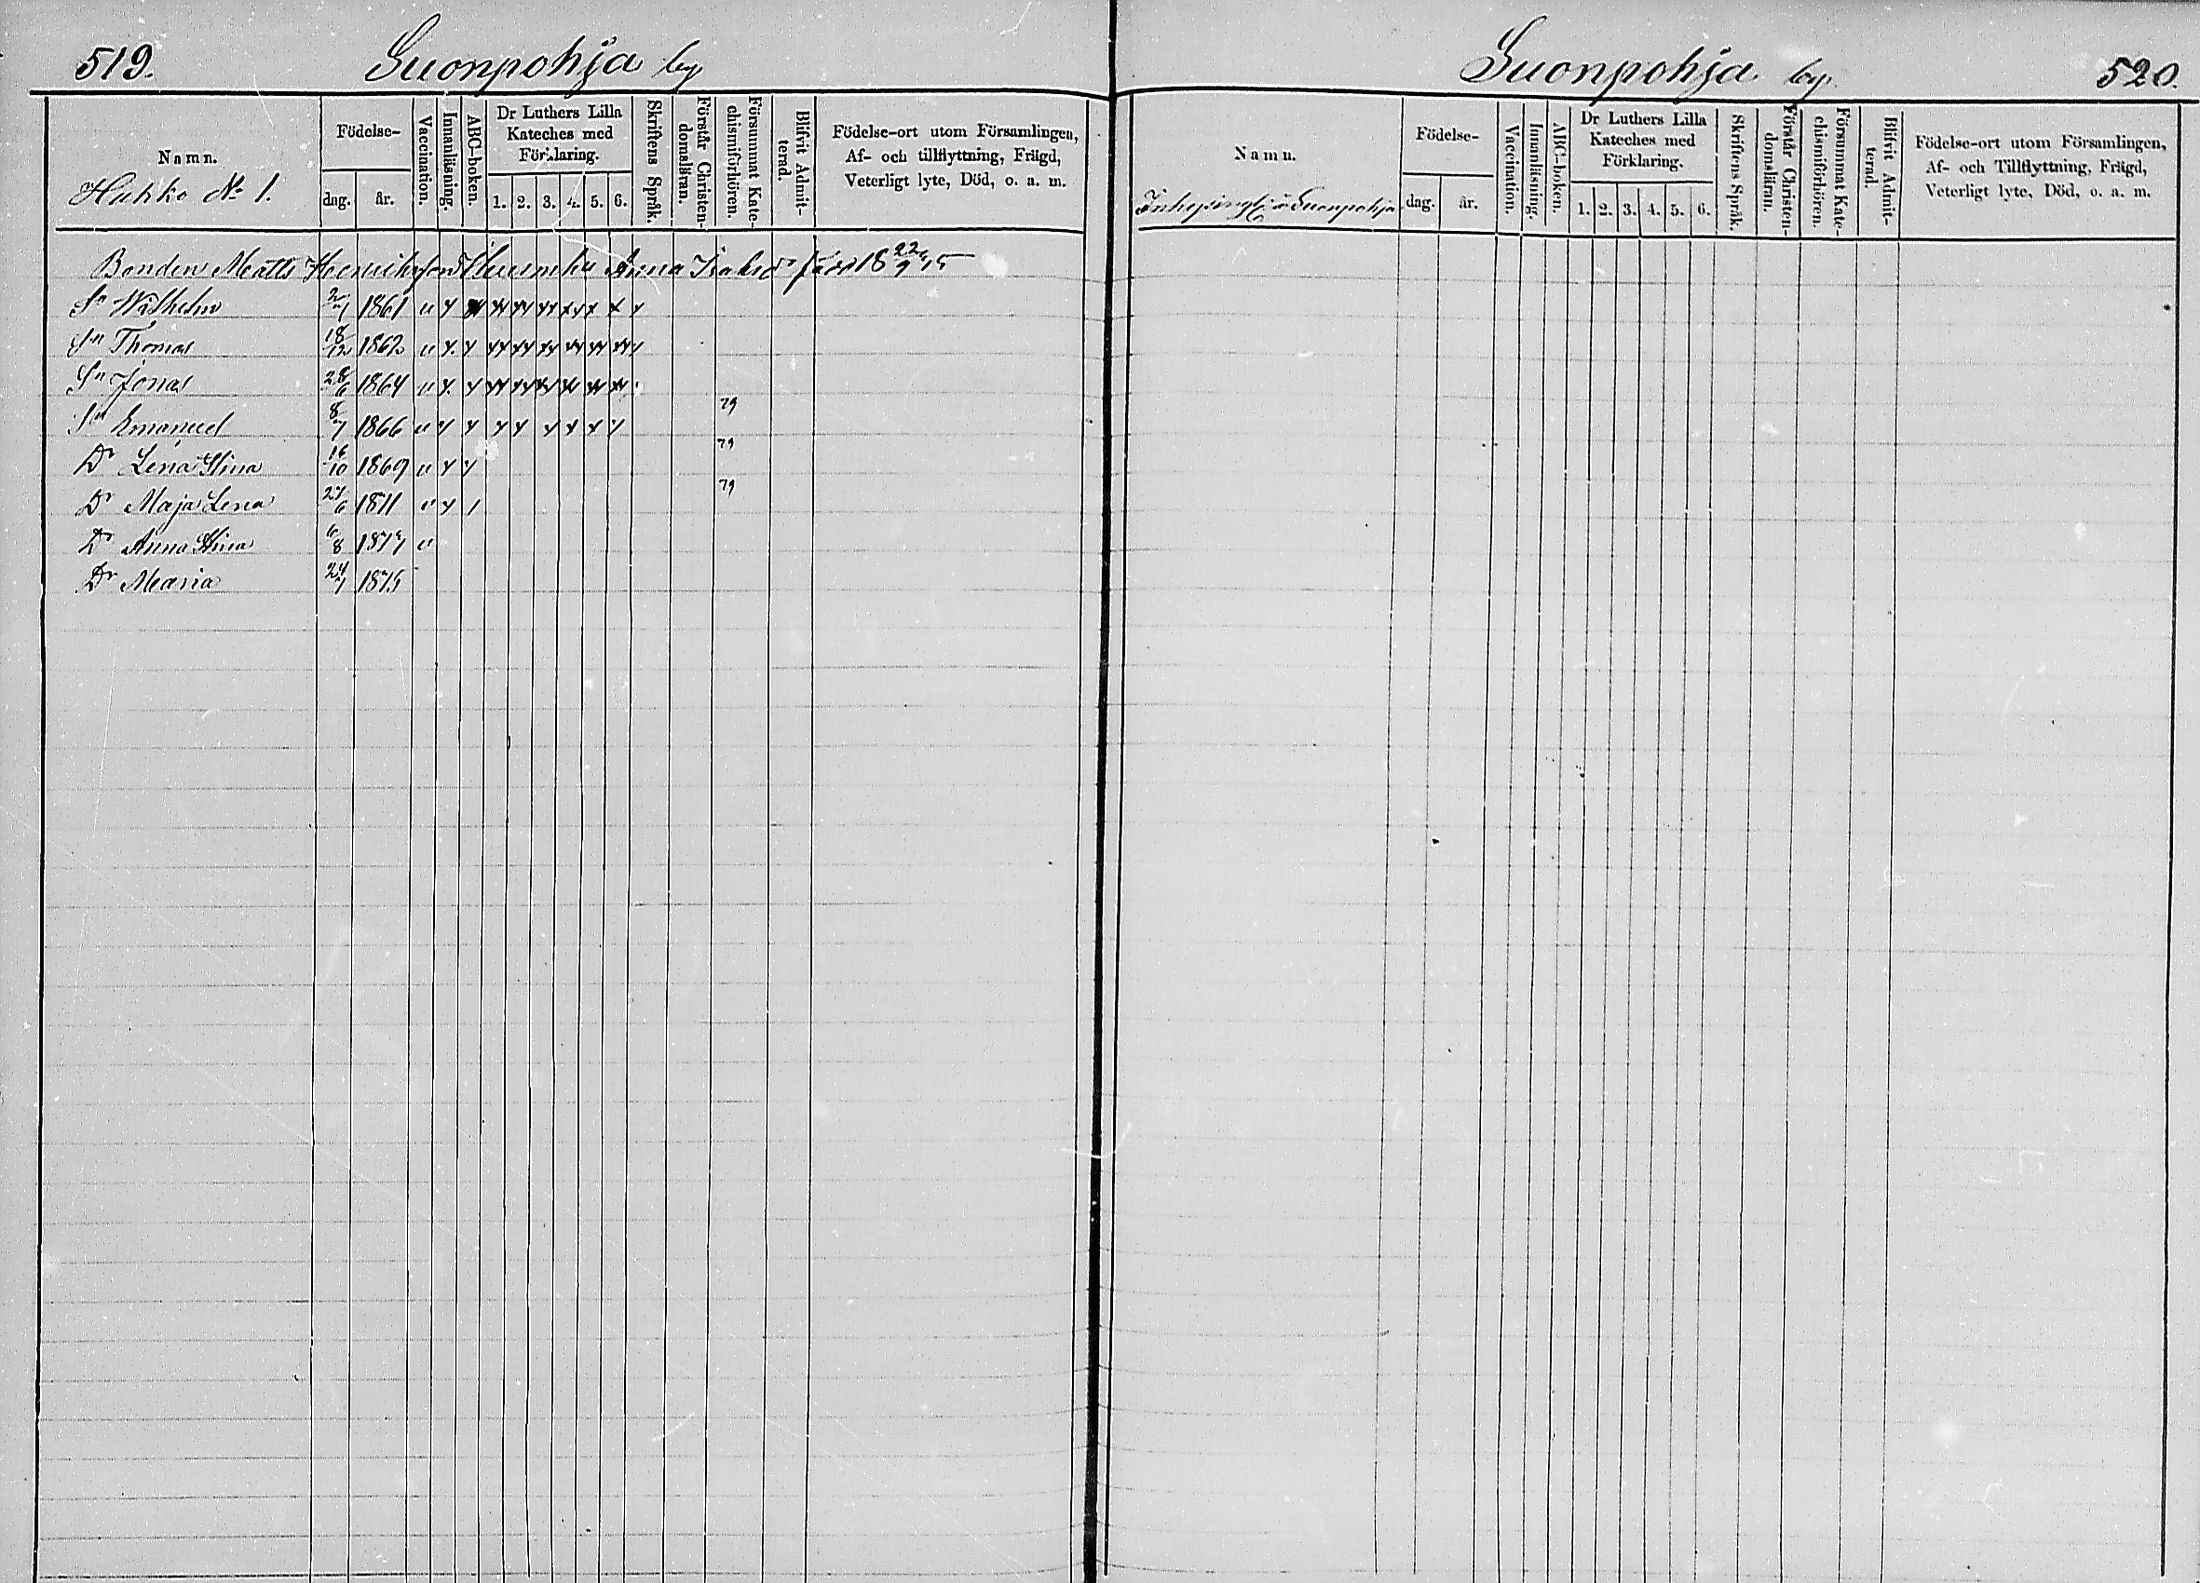 519.
Suonpohja by
Namn.
Huhko No 1.
Födelse-
dag.
år.
Vaccination.
Innanläsning.
ABC-boken.
Dr Luthers Lilla
Kateches med
Förklaring.
1. 2. 3. 4. 5. 6.
Skriftens Språk.
Förstår Christen-
domsläran.
Försummat Kate-
chismiförhören.
Blifvit Admit-
terad.
Födelse-ort utom Församlingen,
Af- och tillflyttning, Frägd,
Veterligt lyte, Död, o. a. m.
Bonden Matts Anna
Sn Wilhelm 2/7 1861
Sn Thomas 18/12 1862
Sn Jonas 28/6 1864
Sn Emanuel 8/7 1866 79
Dr Lena Stina 16/10 1869 79
Dr Maja Lena 27/6 1871 79
Dr Anna Stina 6/8 1877
Dr Maria 24/7 1875
Suonpohja by.
520.
Namn.
Inhysingar i Suonpohja
Födelse-
dag.
år.
Vaccination.
Innanläsning.
ABC-boken.
Dr Luthers Lilla
Kateches med
Förklaring.
1. 2. 3. 4. 5. 6.
Skriftens Språk.
Förstår Christen-
domsläran.
Försummat Kate-
chismiförhören.
Blifvit Admit-
terad.
Födelse-ort utom Församlingen,
Af- och Tillflyttning, Frägd,
Veterligt lyte, Död, o. a. m.